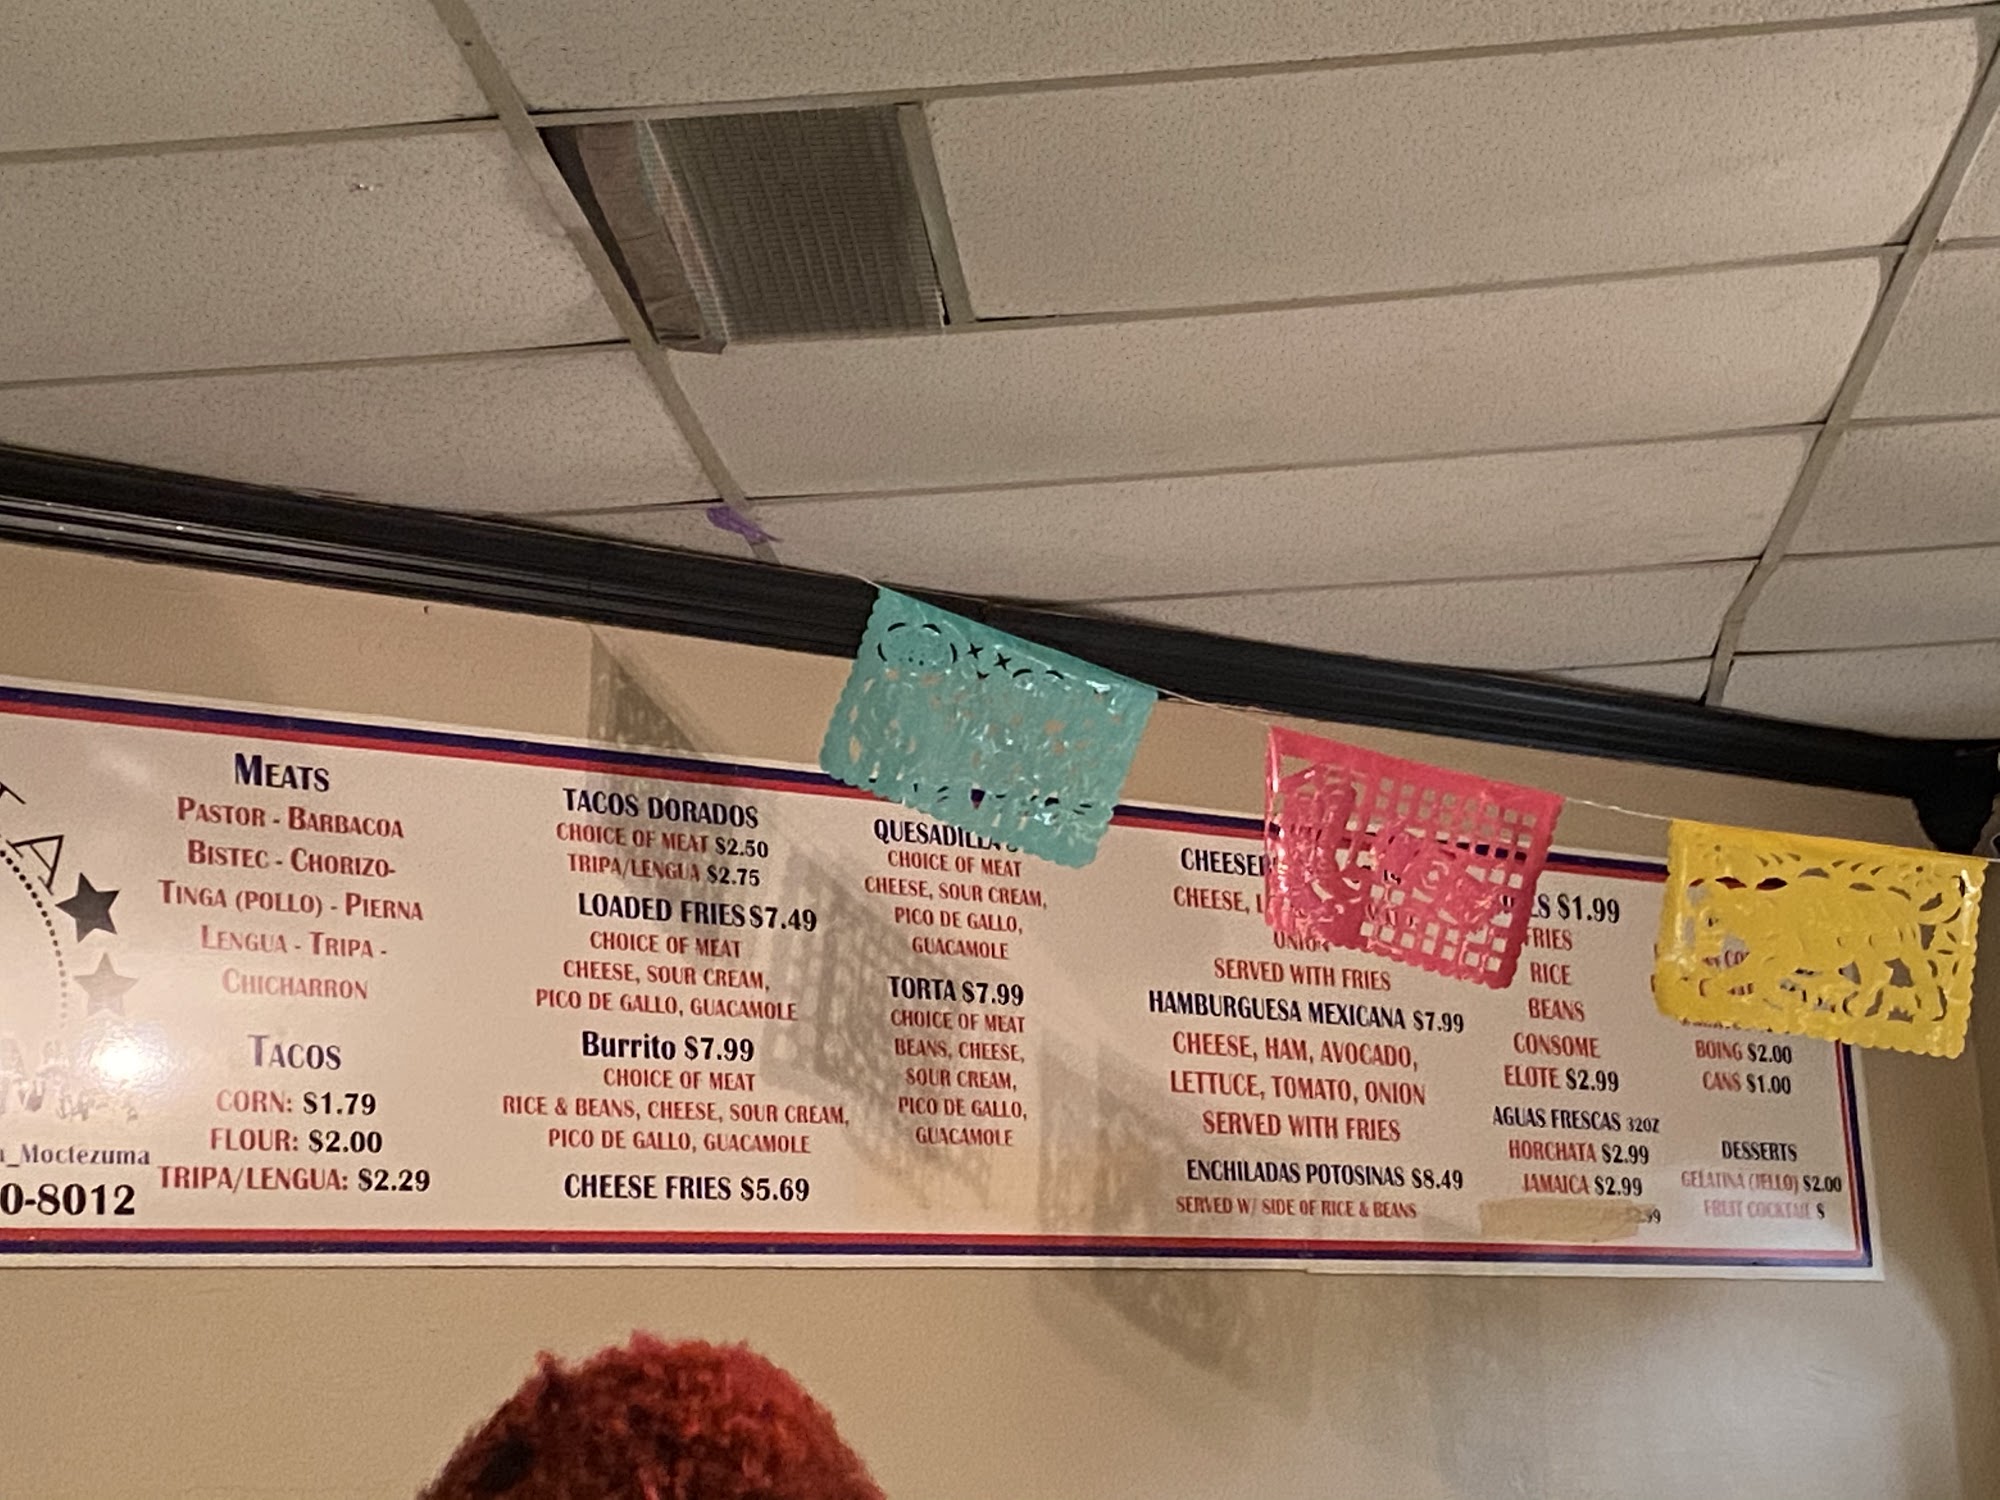 MEATS
PASTOR - BARBACOA
BISTEC - CHORIZO-
TINGA (POLLO) - PIERNA
LENGUA - TRIPA -
CHICHARRON
TACOS
CORN: $1.79
FLOUR: $2.00
TRIPA/LENGUA: $2.29
_Moctezuma
0-8012
TACOS DORADOS
CHOICE OF MEAT $2.50
TRIPA/LENGUA $2.75
LOADED FRIES $7.49
CHOICE OF MEAT
CHEESE, SOUR CREAM,
PICO DE GALLO, GUACAMOLE
Burrito $7.99
CHOICE OF MEAT
RICE & BEANS, CHEESE, SOUR CREAM,
PICO DE GALLO, GUACAMOLE
CHEESE FRIES $5.69
QUESADILLA
CHOICE OF MEAT
CHEESE, SOUR CREAM,
PICO DE GALLO,
GUACAMOLE
TORTA $7.99
CHOICE OF MEAT
BEANS, CHEESE,
SOUR CREAM,
PICO DE GALLO,
GUACAMOLE
CHEESE
CHEESE, L
ONION
SERVED WITH FRIES
HAMBURGUESA MEXICANA $7.99
CHEESE, HAM, AVOCADO,
LETTUCE, TOMATO, ONION
SERVED WITH FRIES
ENCHILADAS POTOSINAS $8.49
SERVED W/ SIDE OF RICE & BEANS
ES $1.99
FRIES
RICE
BEANS
CONSOME
ELOTE $2.99
AGUAS FRESCAS 32OZ
HORCHATA $2.99
JAMAICA $2.99
BOING $2.00
CANS $1.00
DESSERTS
GELATINA (JELLO) $2.00
FRUIT COCKTAIL $